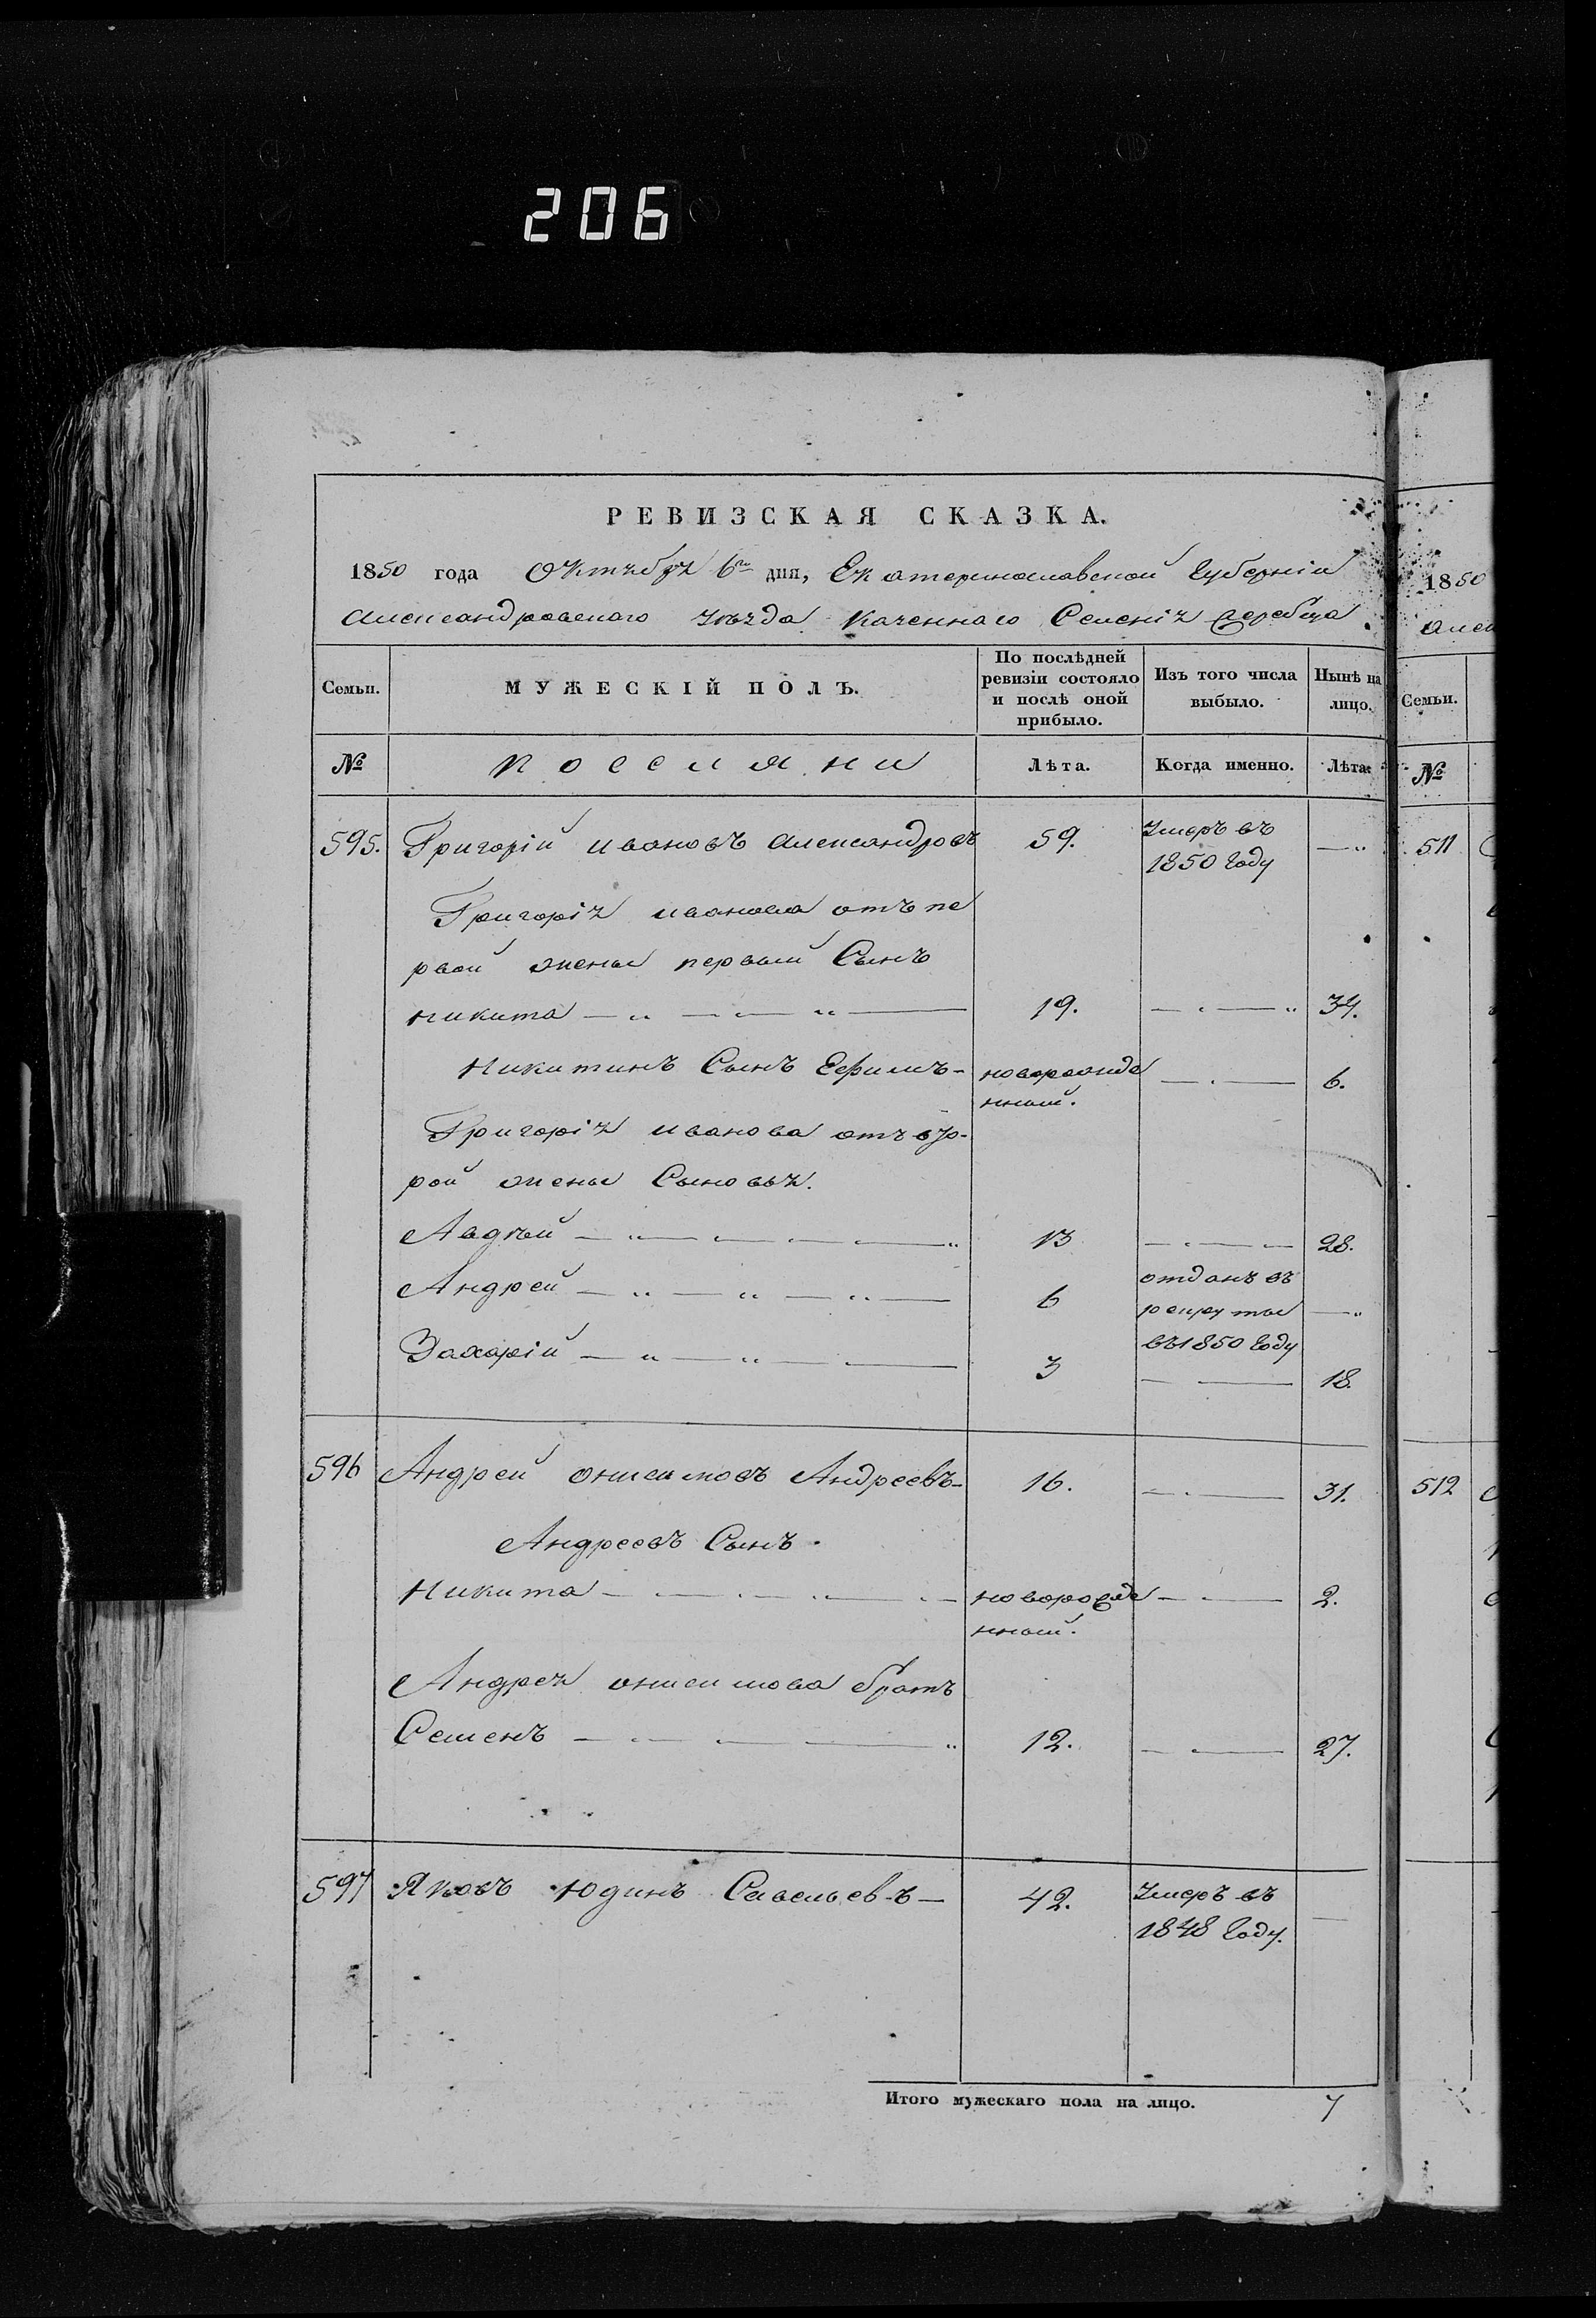 206
РЕВИЗСКАЯ СКАЗКА.
1850 года Октября 6го дня, Екатеринославской Губерніи
Александровскаго уѣзда Казеннаго Селенія Жеребца
Семьи. МУЖЕСКІЙ ПОЛЪ. По послѣдней ревизіи состояло и послѣ оной прибыло. Изъ того числа выбыло. Нынѣ на лицо.
№ поселяни Лѣта. Когда именно. Лѣта.
595. Григорій ивановъ александровъ 59. Умеръ въ 1850 Году — „
Григорія иванова отъ пе
рвой жены первый Сынъ
никита — „ — „ — 19. — „ — „ 34.
Никитинъ Сынъ Ефимъ - новорожде нный. — 6.
Григорія иванова отъ вто-
рой жены Сыновья.
Авдѣй — „ — „ 13 — 28.
Андрей — „ — „ — „ — 6 отданъ въ рекруты въ 1850 Году — „
Захарій — „ — „ — 3 — 18.
596 Андрей онисимовъ Андреевъ - 16. — 31.
Андреевъ Сынъ.
Никита — новорожде нный. — 2.
Андрея онисимова братъ
Семенъ — „ 12. — 27.
597 Яковъ Юдинъ Савельевъ — 42. Умеръ въ 1848 Году. —
Итого мужескаго пола на лицо. 7
1850
алек
Семьи.
№
511
512